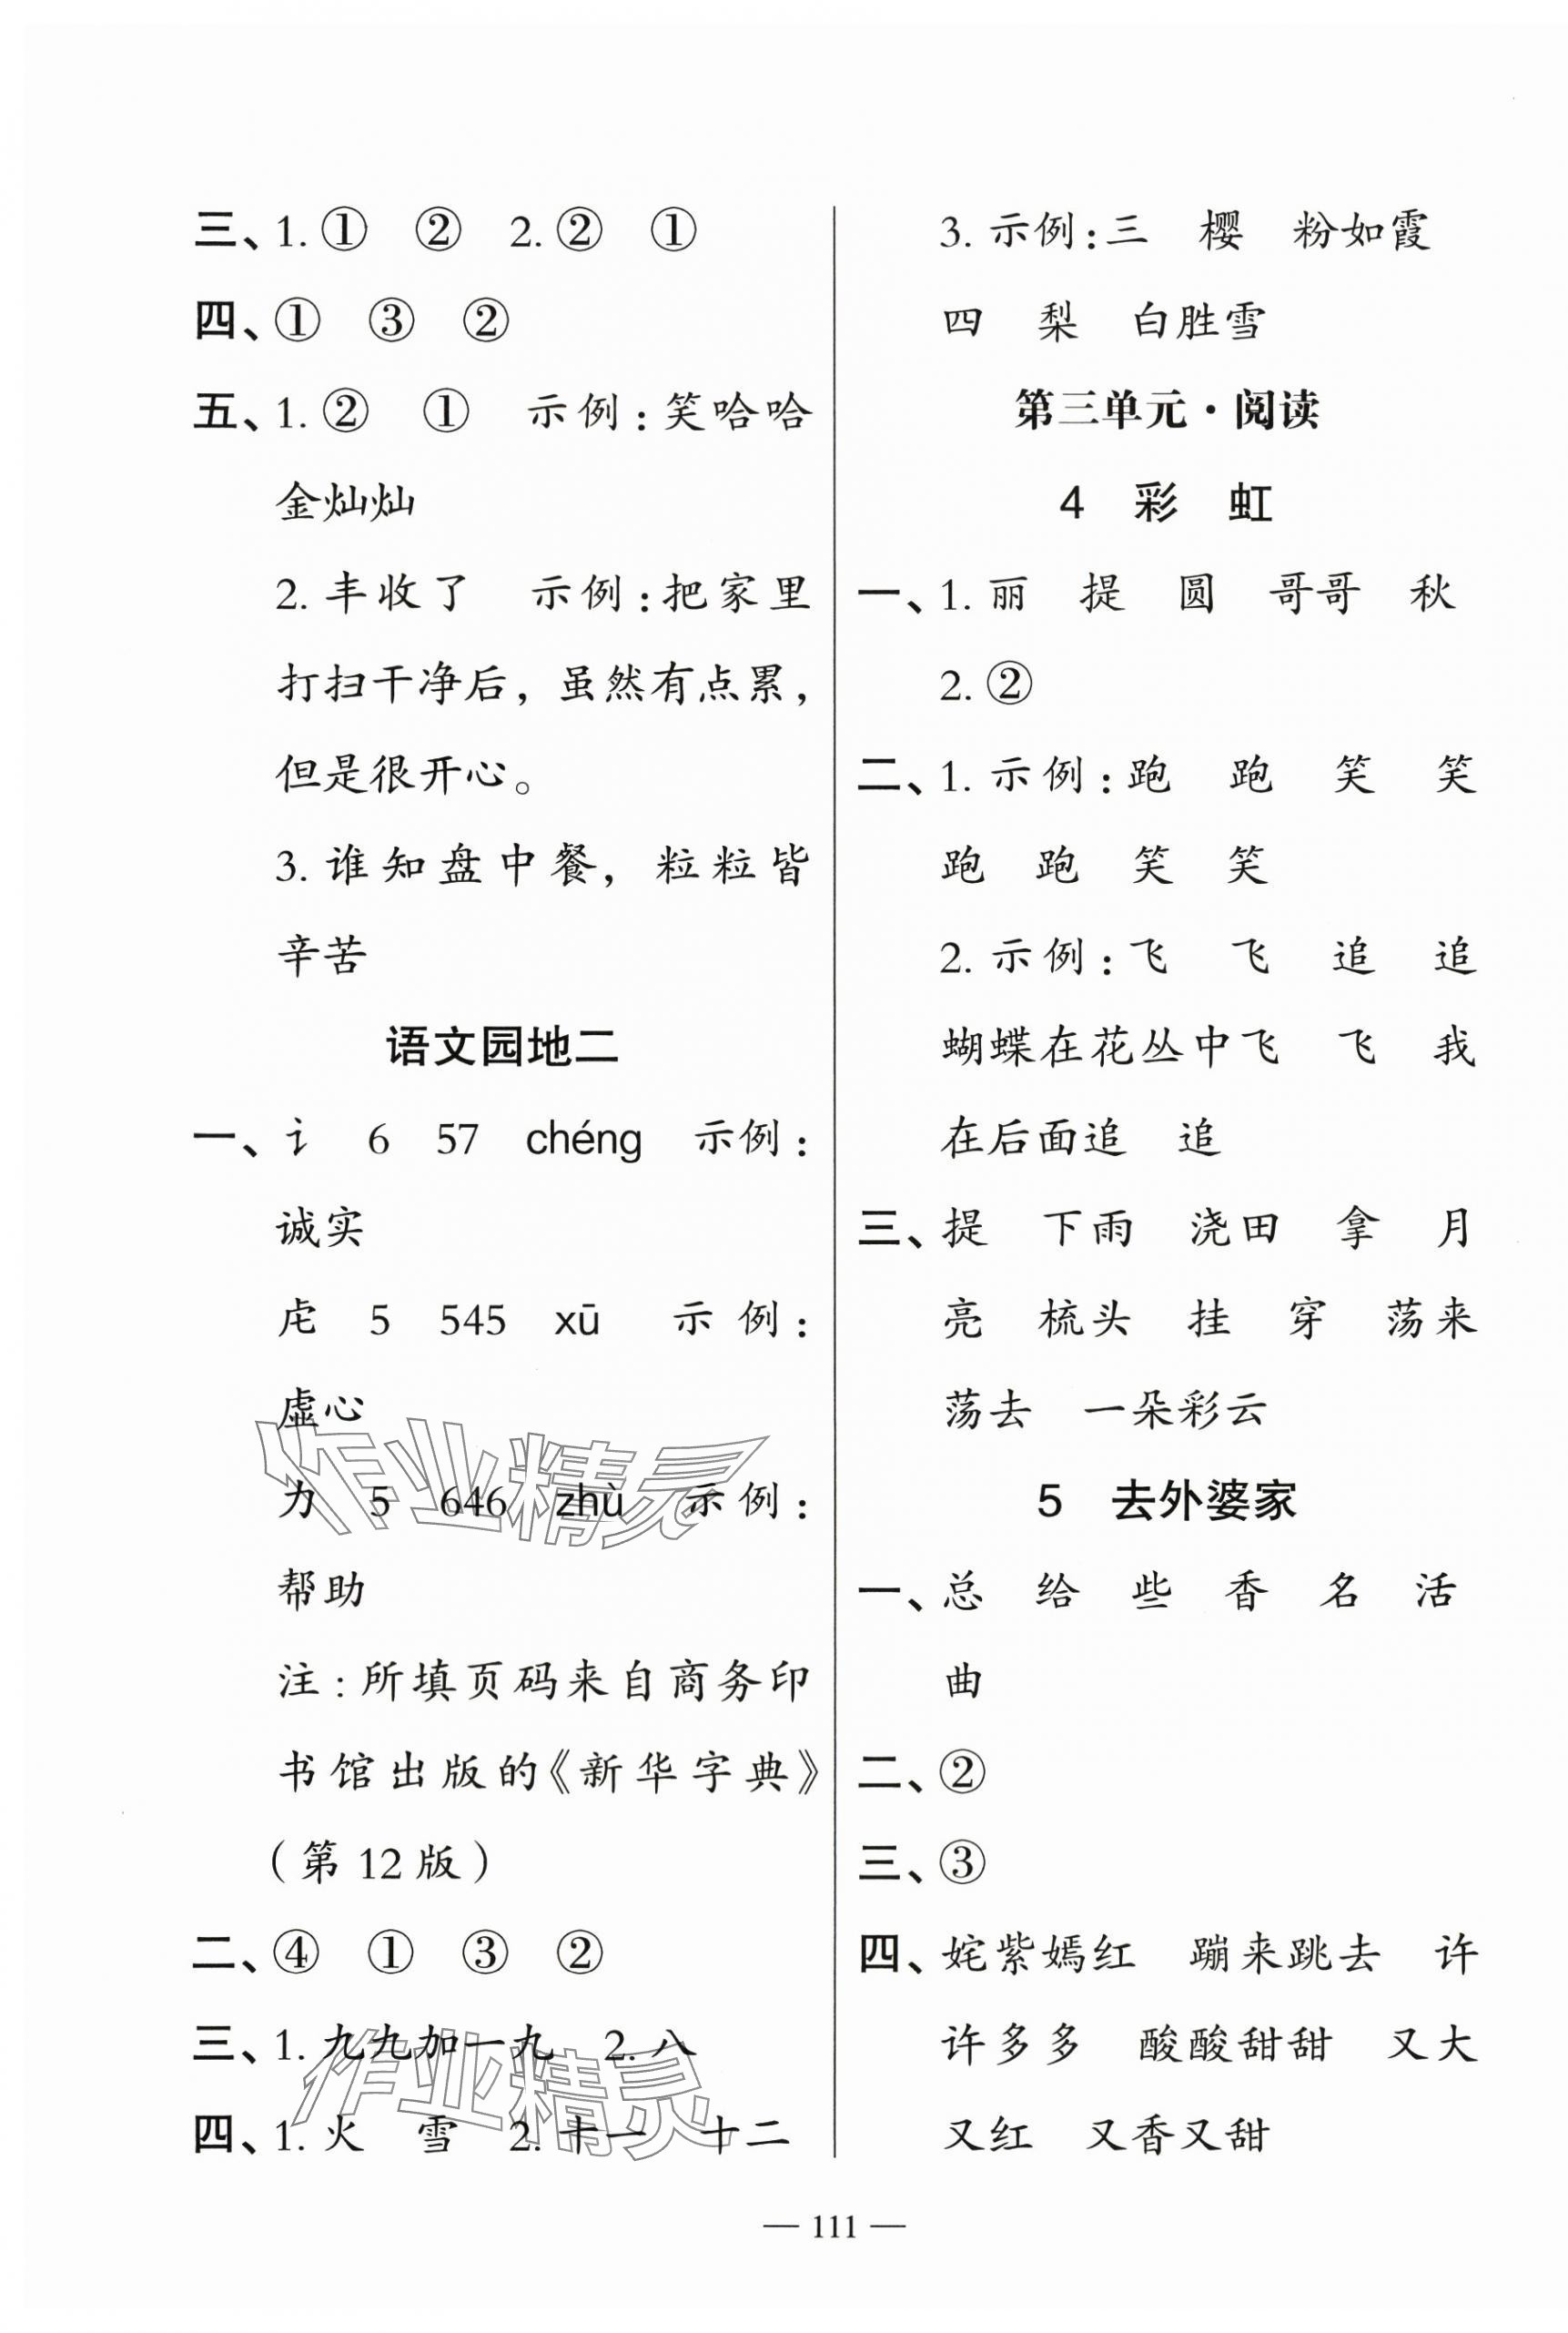 三、1. ① ② 2. ② ①
四、① ③ ②
五、1. ② ① 示例：笑哈哈
金灿灿
2. 丰收了 示例：把家里
打扫干净后，虽然有点累，
但是很开心。
3. 谁知盘中餐，粒粒皆
辛苦
语文园地二
一、讠 6 57 chéng 示例：
诚实
虍 5 545 xū 示例：
虚心
力 5 646 zhù 示例：
帮助
注：所填页码来自商务印
书馆出版的《新华字典》
（第12版）
二、④ ① ③ ②
三、1. 九九加一九 2. 八
四、1. 火 雪 2. 十一 十二
3. 示例：三 樱 粉如霞
四 梨 白胜雪
第三单元·阅读
4 彩 虹
一、1. 丽 提 圆 哥哥 秋
2. ②
二、1. 示例：跑 跑 笑 笑
跑 跑 笑 笑
2. 示例：飞 飞 追 追
蝴蝶在花丛中飞 飞 我
在后面追 追
三、提 下雨 浇田 拿 月
亮 梳头 挂 穿 荡来
荡去 一朵彩云
5 去外婆家
一、总 给 些 香 名 活
曲
二、②
三、③
四、姹紫嫣红 蹦来跳去 许
许多多 酸酸甜甜 又大
又红 又香又甜
— 111 —
作业精灵
作业精灵